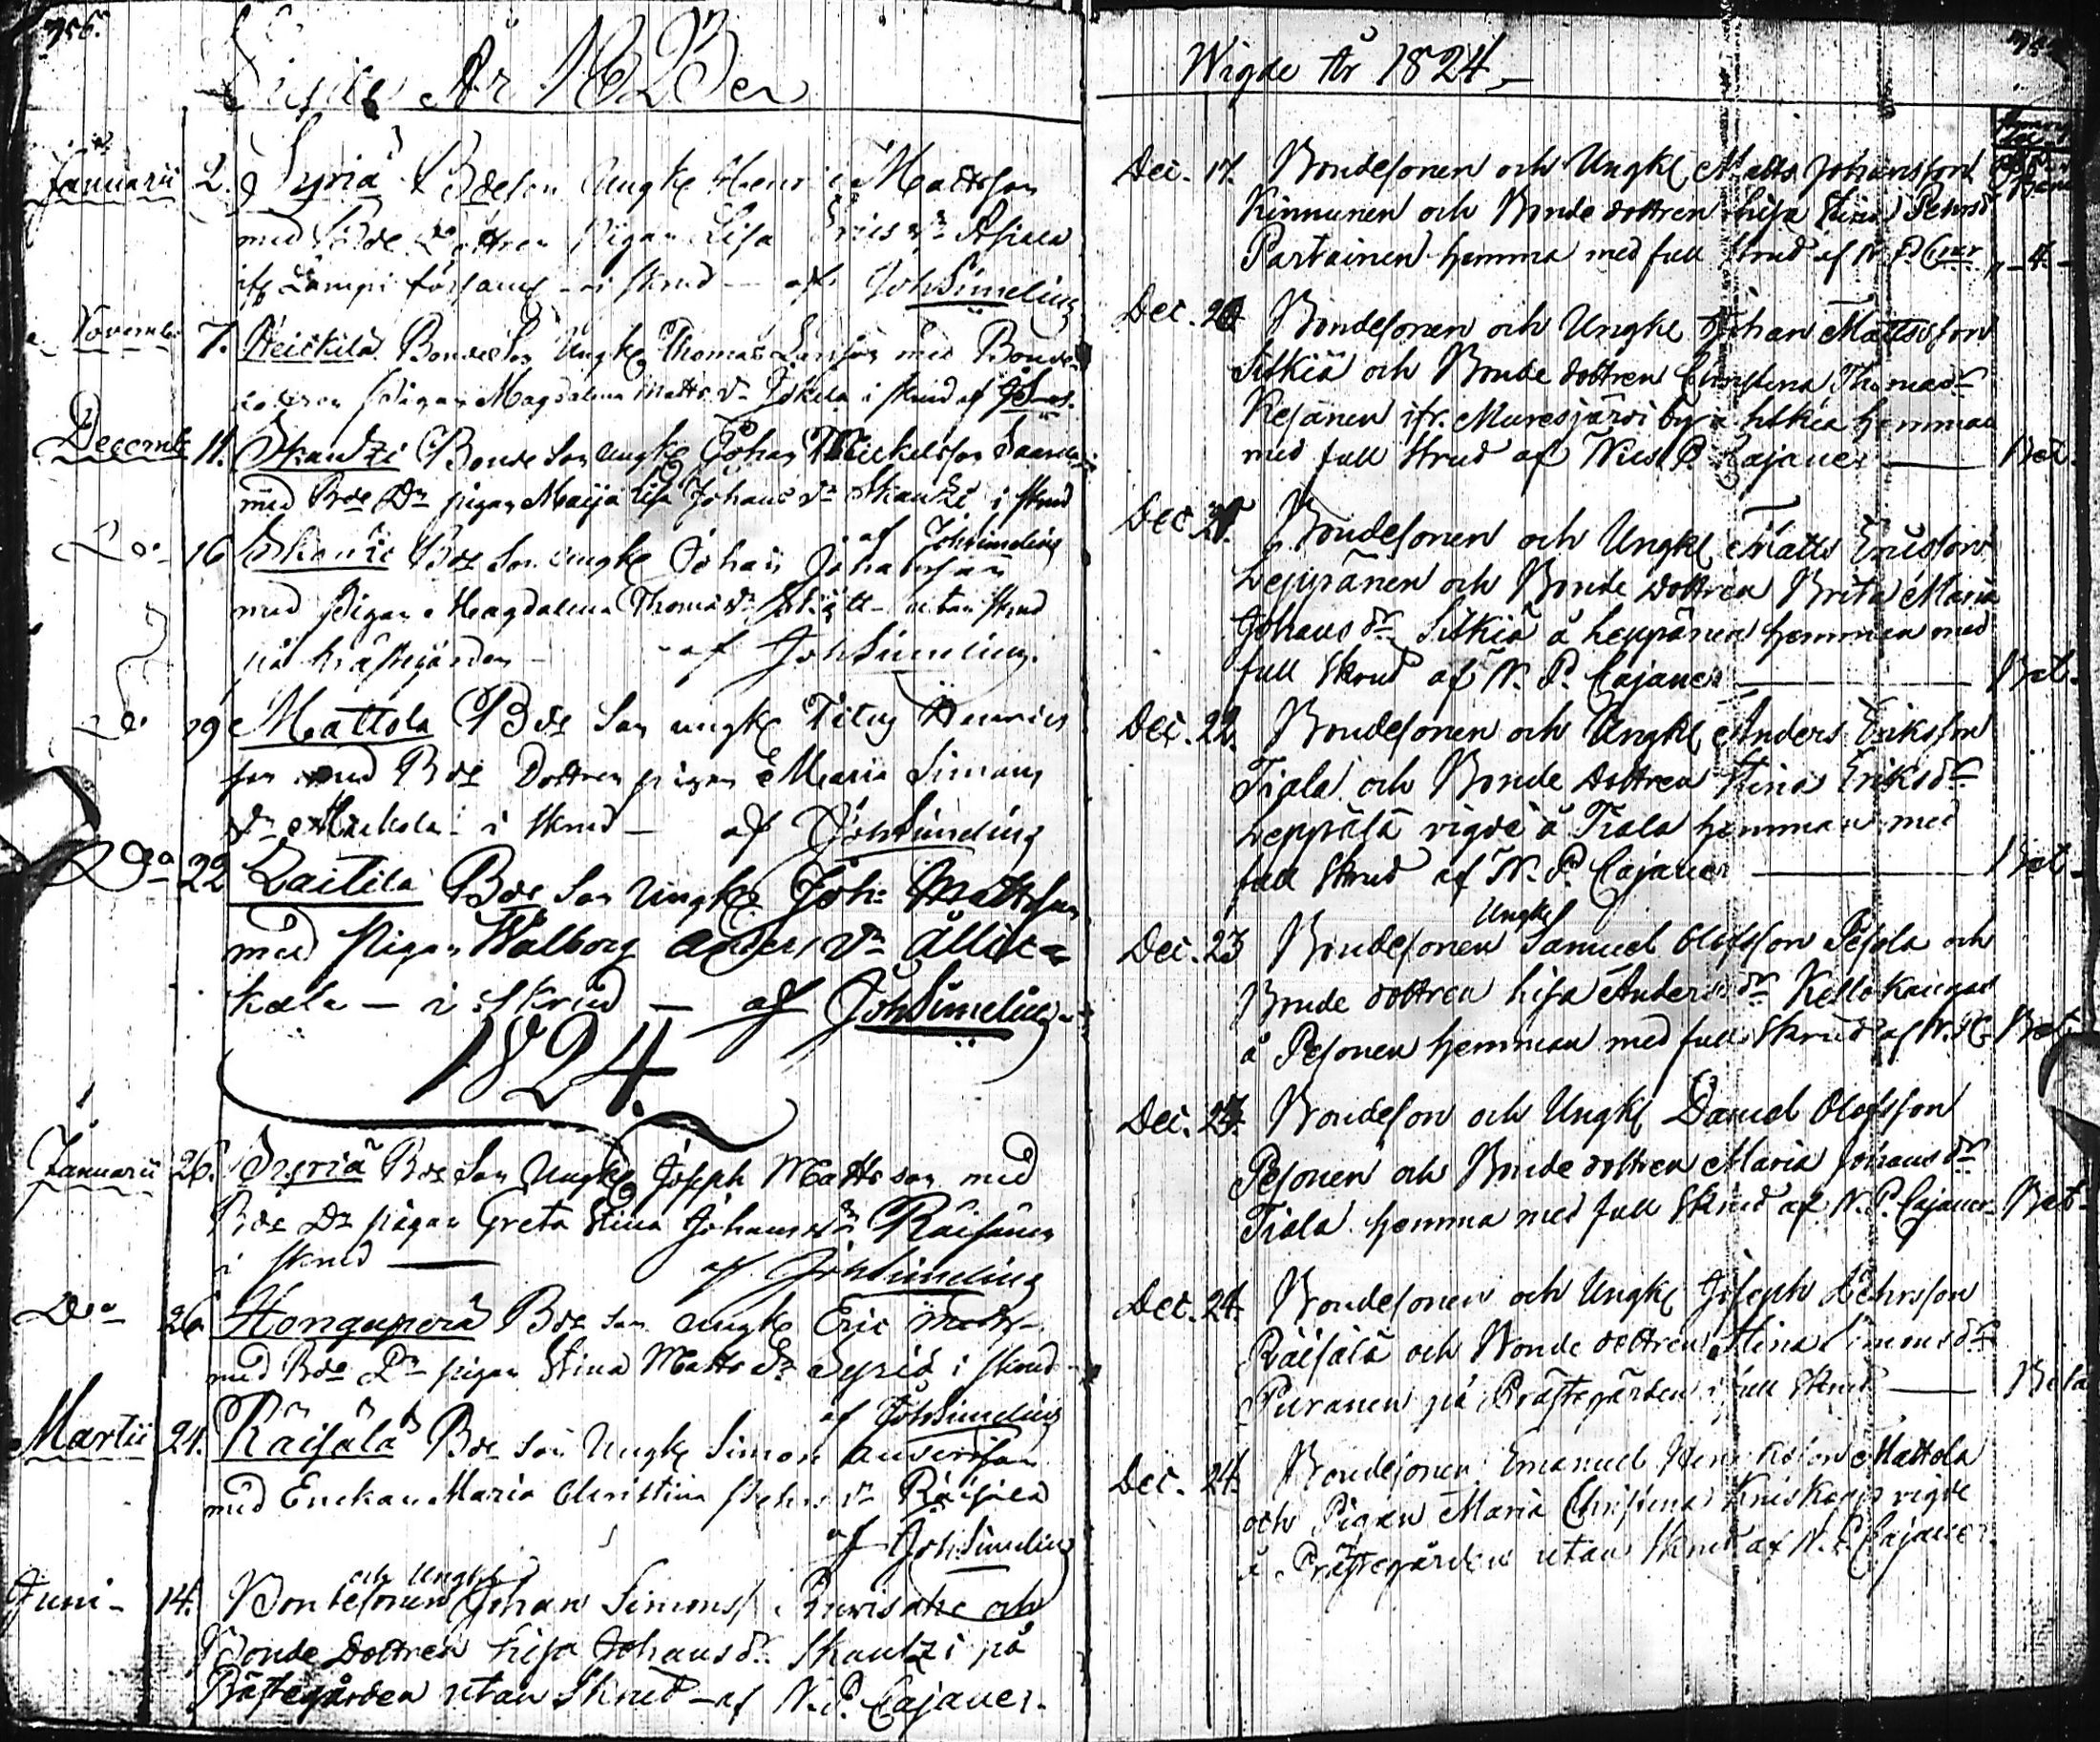 356.
År 1823 er
Januarii 2. Syriä Bdeson Ungk Henric Mattsson
med Bde Dottren Pigan Lisa Erics dr
församl - i skrud - af JohSimelius
November 7. Heickilä Bonde Son Ungk Thomas Larsson med Bonde
Pigan Magdalena Matts dr Jokela i skrud af JoS
Decemb 11. Skantzi Bonde Son ungk Johan Mickelsson
med Bde Dr pigan Maija Lisa Johans dr Skantzi i skrud
af JohSimelius
Do 16 Skantzi Bde Son ungk Johan Johansson
med Pigan Magdalena Thomas dr utan skrud
på Prästegården - af JohSimelius
Do 19 Mattola Bde Son ungk Titus Henrics
son med Bde Dottren pigan Maria Simons
dr i skrud - af JohSimelius
Do 22 Laitila Bde Son Ungk Joh: Mattsson
med Pigan Walborg Anders dr
kala - i skrud - af JohSimelius
1824.
Januarii 26. Syriä Bde Son Ungk Joseph Matts son med
Bde Dr pigan Greta Stina Johans dr Räisänen
i skrud — af JohSimelius
Do 26 Hongaperä Bde Son ungk Eric Matts
med Bde Dr pigan Stina Matts dr Syriä i skrud
af JohSimelius
Martii 24. Räisälä Bde Son Ungk Simon Andersson
med Enckan Maria Christina Pehrs dr Räisälä
af JohSimelius
och Ungkl
Juni - 14. Bondesonen Johan Simonss och
Bonde Dottren Lisa Johans dr Skantzi på
Prästegården utan Skrud - af N. P. Cajaner.
Wigde År 1824
Dec. 17. Bondesonen och Ungkl Matts Johansson
Kinnunen och Bonde dottren Lisa Stina Pehrsdr
Partainen hemma med full skrud af N. P. Cajar
Dec. 20 Bondesonen och Ungkl Johan Mattsson
Sitkiä och Bonde dottren Christina Thomasdr
Kesänen ifr. Muresjärvi by å Sitkiä hemman
med full Skrud af Nils P. Cajaner — Bet.
Dec. 21. Bondesonen och Ungkl Matts Ericsson
Leppänen och Bonde Dottren Brita Maria
Johans dr Sitkiä å Leppänen hemman med
full Skrud af N. P. Cajaner — Bet.
Dec. 22. Bondesonen och Ungkl Anders Eriksson
Tiala och Bonde Dottren Stina Eriksdr
Leppälä vigde å Tiala hemman med
full Skrud af N. P. Cajaner — Bet.
Ungkl
Dec. 23 Bondesonen Samuel Olofsson Pesola och
Bonde dottren Lisa Anders dr Kellokangas
å Pesonen hemman med full Skrud af N. P. C Bet
Dec. 23. Bondeson och Ungkl Daniel Olofsson
Pesonen och Bonde dottren Maria Johans dr
Tiala hemma med full Skrud af N. P. Cajaner Bet.
Dec. 24. Bondesonen och Ungkl Joseph Pehrsson
Räisälä och Bonde dottren Stina Simonsdr
Puranen på Prästegården i full Skrud — Beta
Dec. 24. Bondesonen Emanuel Henriksson Mattola
och Pigan Maria Christina vigde
å Prästegården utan Skrud af N. P. Cajaner.